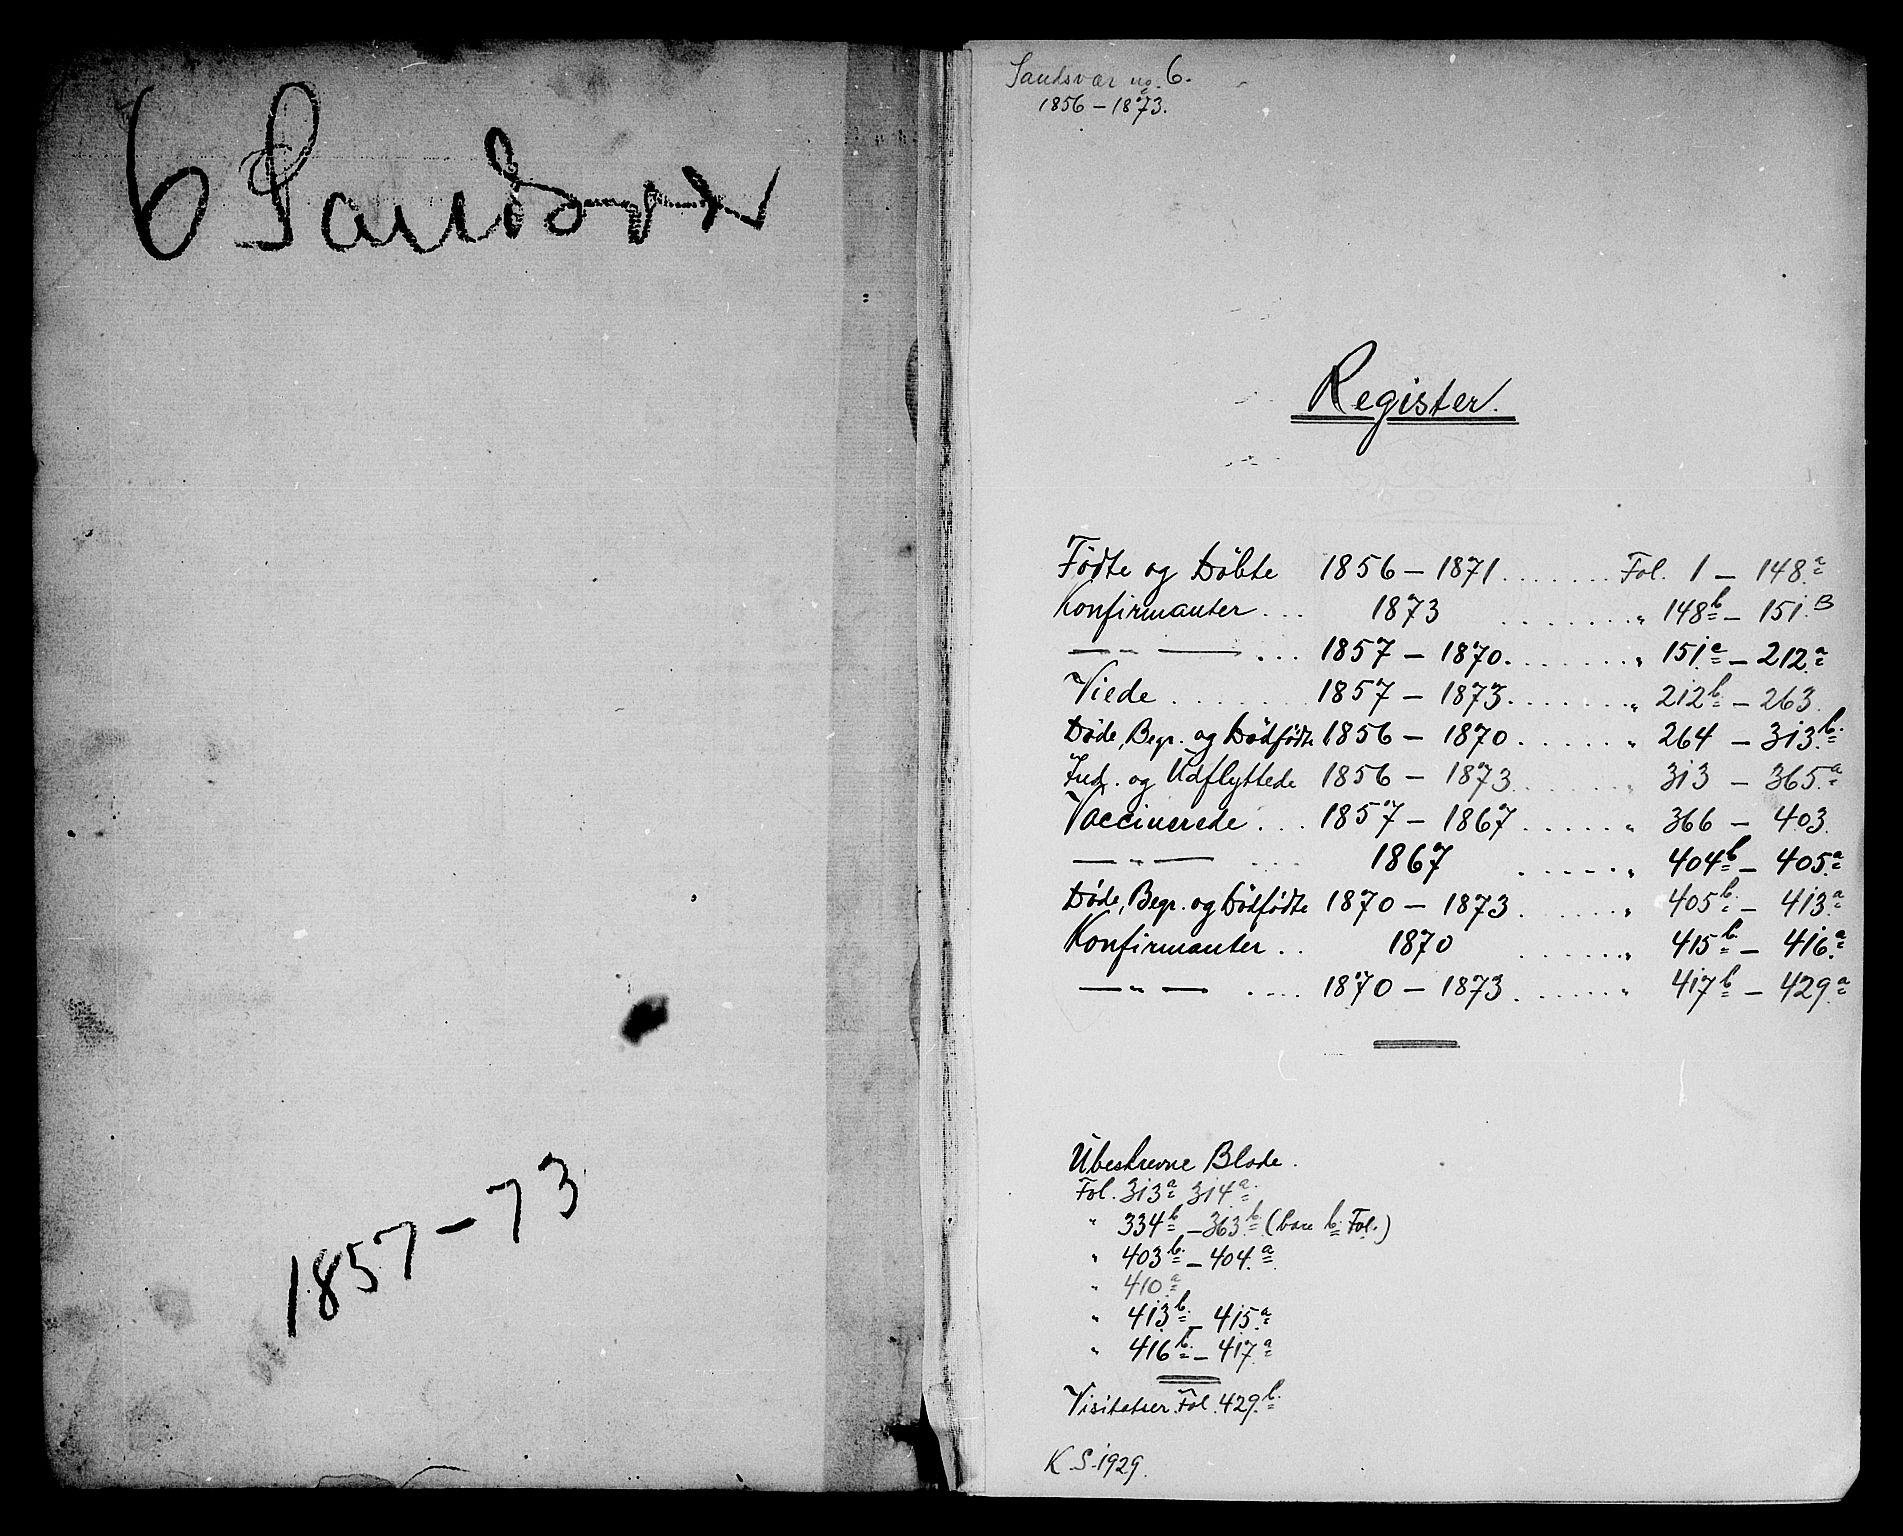 6 Sandsvær
1857-73
Sandsvær no. 6.
1856-1873.
Register.
Fødte og Döbte 1856 - 1871........ Fol. 1 - 148.a
Konfirmanter... 1873 ........ " 148b - 151.B
— " — ... 1857 - 1870........ " 151.a - 212.a
Viede........ 1857 - 1873........ " 212b - 263.
Døde, Begr. og Dödfödte 1856 - 1870....... " 264 - 313.b
Ind. og Udflyttede 1856 - 1873....... " 313 - 365.a
Vaccinerede... 1857 - 1867....... " 366 - 403.
— " — ... 1867 ...... " 404b - 405.a
Døde, Begr. og Dödfödte 1870 - 1873....... " 405b - 413.a
Konfirmanter.. 1870 ....... " 415b - 416.a
— " — .... 1870 - 1873....... " 417b - 429.a
Ubeskrevne Blade.
Fol. 313a 314a
" 334b - 363b (bare b Fol.)
" 403b - 404.a
" 410.a
" 413b - 415.a
" 416b - 417.a
Visitatser. Fol. 429.b
K S. 1929.